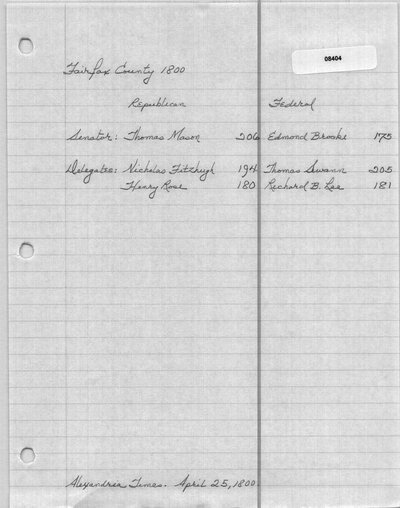 08404
Fairfax County 1800
Republican Federal
Senator: Thomas Mason 206 Edmond Brooke 175
Delegates: Nicholas Fitzhugh 194 Thomas Swann 205
Henry Rose 180 Richard B. Lee 181
Alexandria Times. April 25, 1800